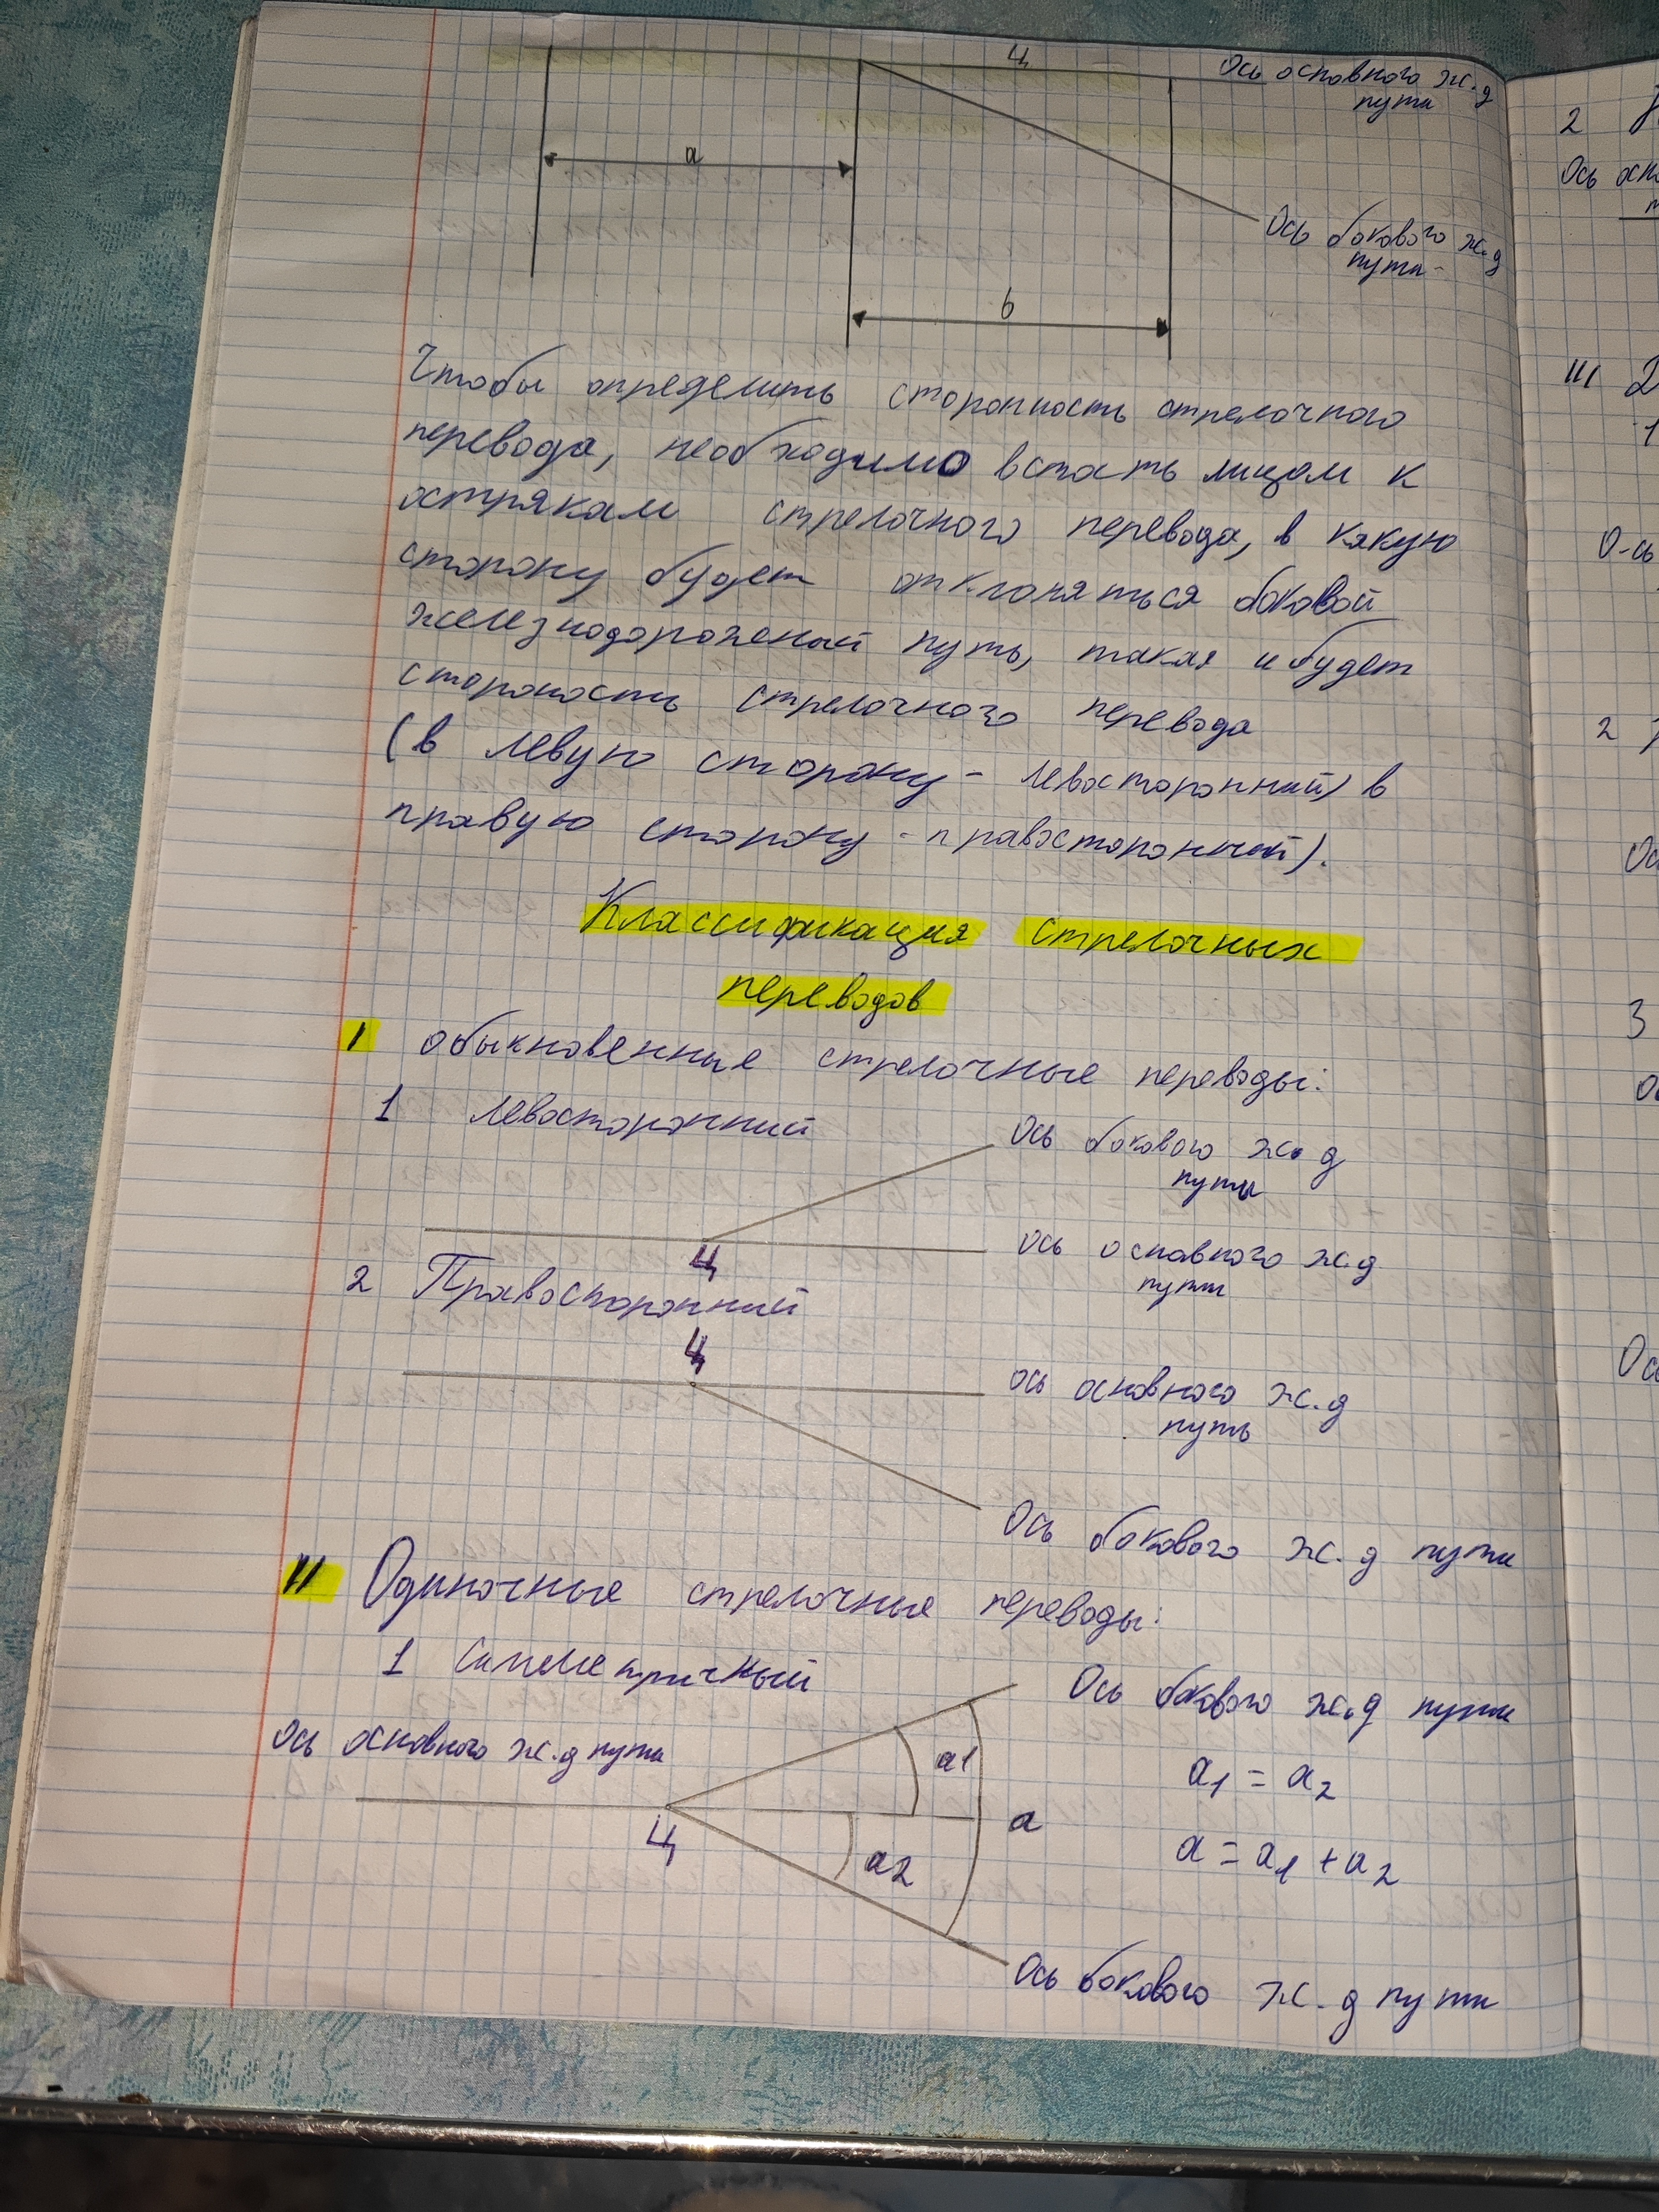 Ц
Ось основного ж.д
пути
а
Ось бокового ж.д
пути
b
Чтобы определить сторонность стрелочного
перевода, необходимо встать лицом к
острякам стрелочного перевода, в какую
сторону будет отклоняться боковой
железнодорожный путь, такая и будет
стороность стрелочного перевода
(в левую сторону - левосторонний) в
правую сторону - правосторонний).
Классификация стрелочных
переводов
I обыкновенные стрелочные переводы:
1 левосторонний
Ось бокового ж.д
пути
Ц
ось основного ж.д
пути
2 Правосторонний
Ц
ось основного ж.д
путь
Ось бокового ж.д пути
II Одиночные стрелочные переводы:
1 Симметричный
Ось бокового ж.д пути
Ось основного ж.д пути
а1
a₁ = a₂
Ц
а
а2
a = a₁ + a₂
Ось бокового ж.д пути
2
Ось
III 2
1
О-сь
2
3